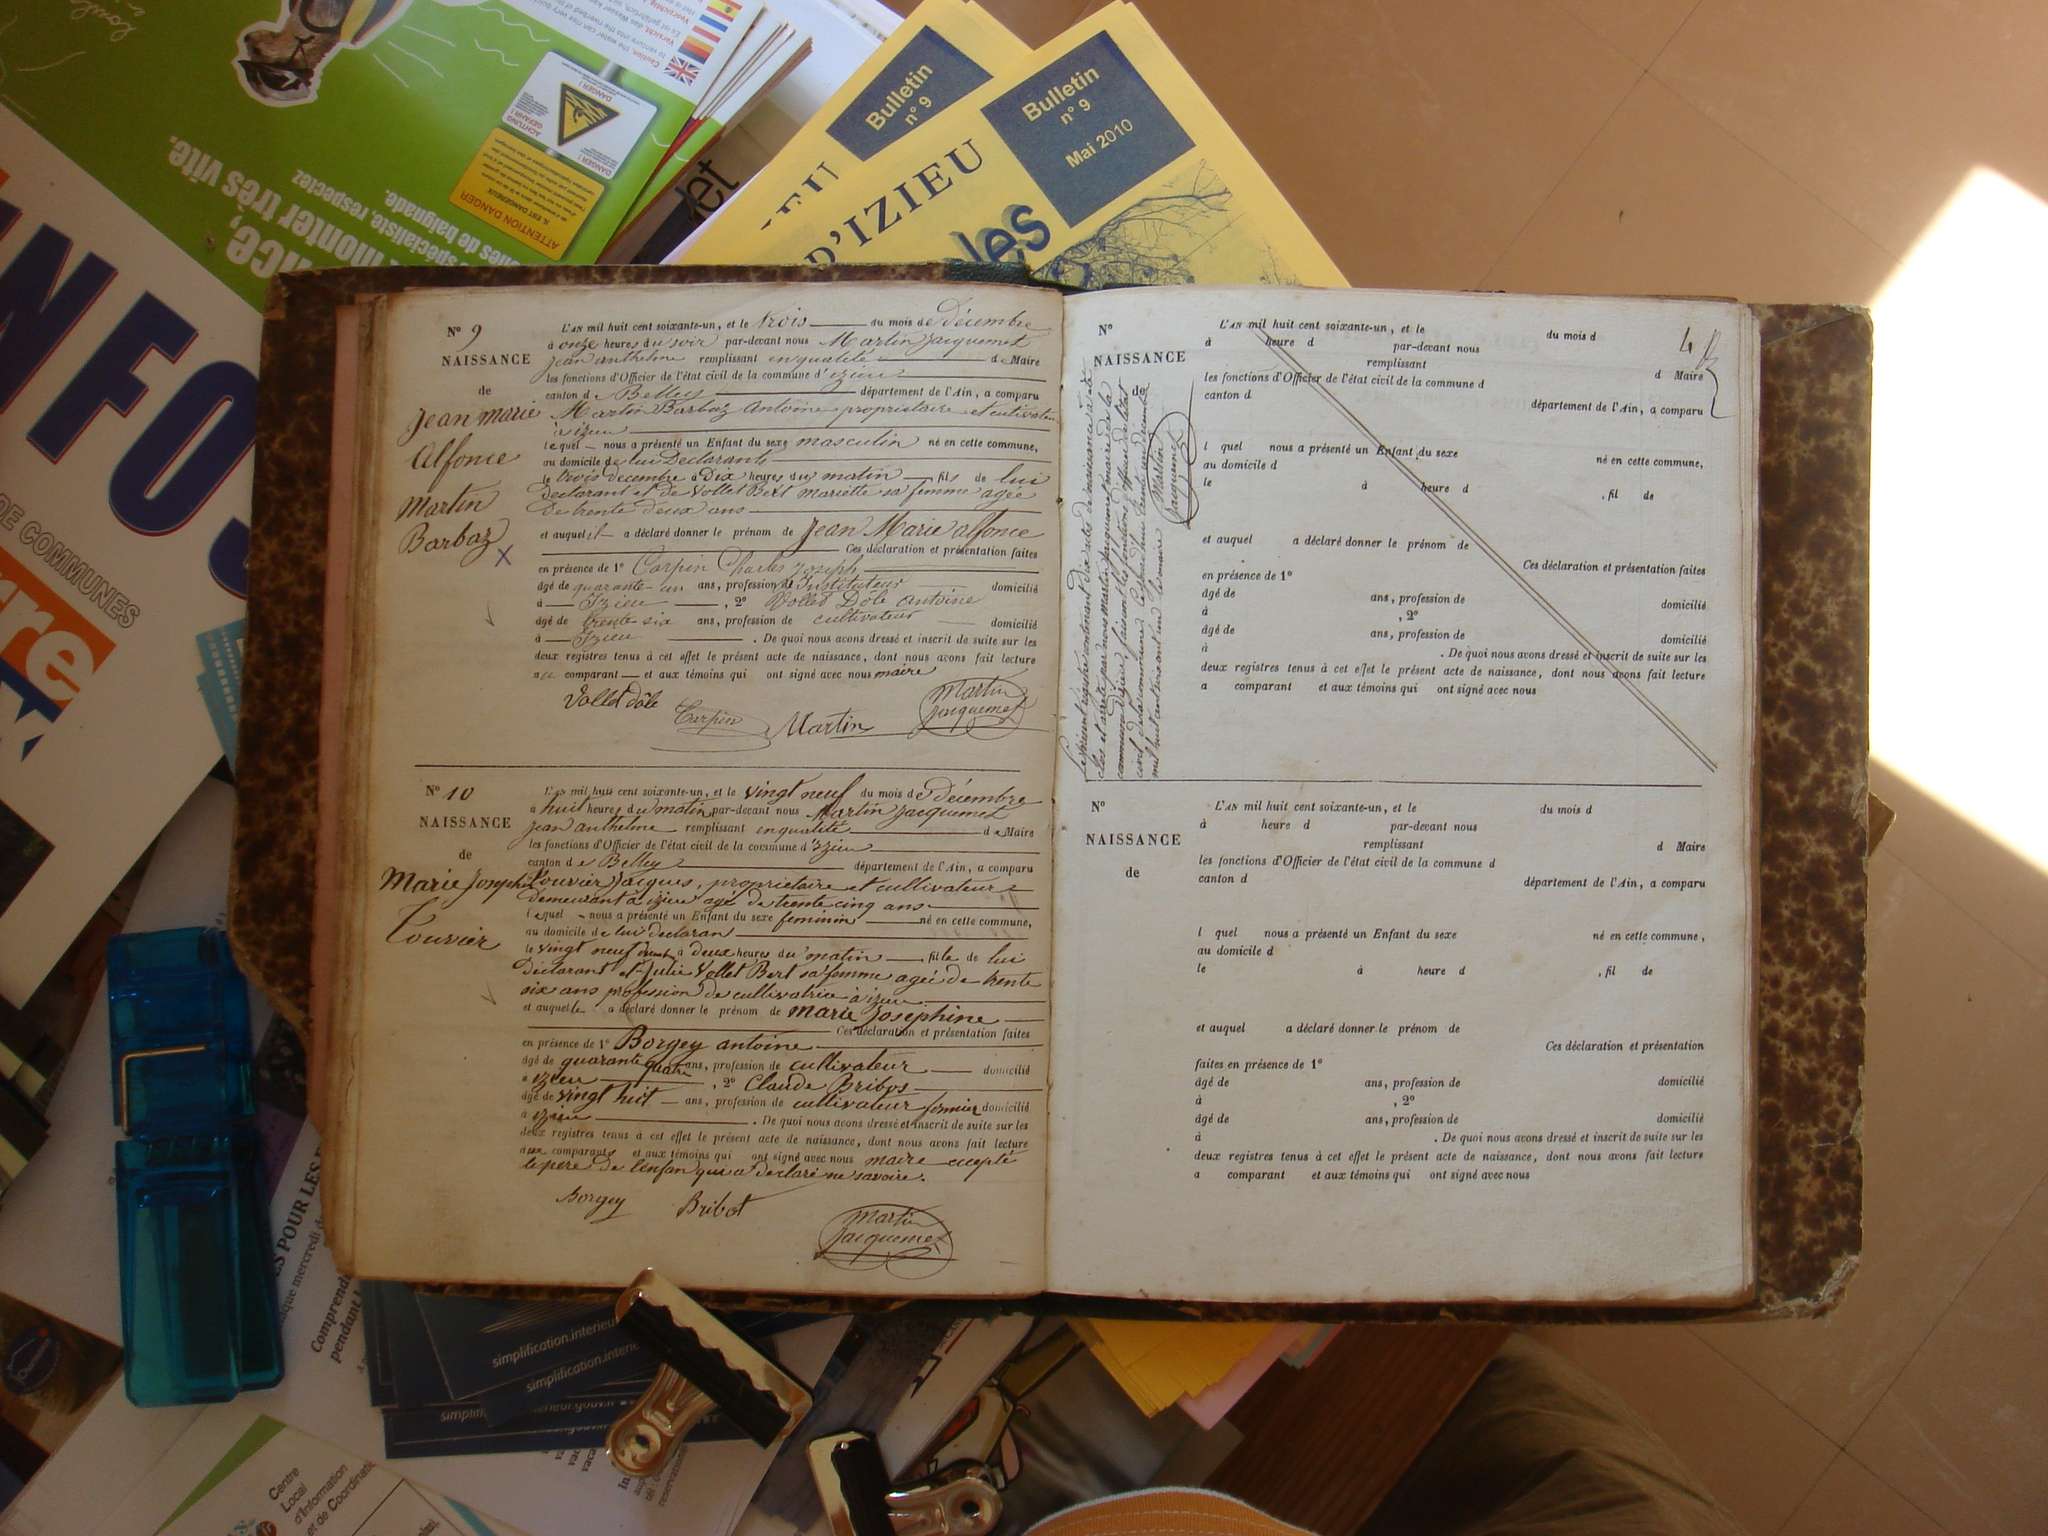 Bulletin
n° 9
Bulletin
n° 9
Mai 2010
D'IZIEU
les
ATTENTION DANGER
IL EST DANGEREUX
DANGER !
ACHTUNG
GEFAHR !
DANGER
Caution,
Vorsicht,
monter très vite.
spécialiste, respectez
de baignade.
INFOS
DE COMMUNES
N° 9
NAISSANCE
de
Jean marie
Alfonce
Martin
Barbaz
X
L'AN mil huit cent soixante-un, et le trois du mois de Décembre
à onze heures du soir par-devant nous Martin Jacquemet
Jean anthelme remplissant en qualité de Maire
les fonctions d'Officier de l'état civil de la commune d'izieu
canton de Belley département de l'Ain, a comparu
Martin Barbaz Antoine propriétaire et cultivateur
à izieu
lequel nous a présenté un Enfant du sexe masculin né en cette commune,
au domicile de lui Declarant
le trois decembre à Dix heures du matin fils de lui
Declarant et de Vollet Bert mariette sa femme agée
de trente deux ans
et auquel a déclaré donner le prénom de Jean Marie alfonce
Ces déclaration et présentation faites
en présence de 1° Carpin Charles Joseph
âgé de quarante-un ans, profession de Instituteur domicilié
à Izieu , 2° Vollet Dôle Antoine
âgé de trente six ans, profession de cultivateur domicilié
à Izieu . De quoi nous avons dressé et inscrit de suite sur les
deux registres tenus à cet effet le présent acte de naissance, dont nous avons fait lecture
au comparant et aux témoins qui ont signé avec nous maire
Vollet dôle
Carpin
Martin
Martin
Jacquemet
N° 10
NAISSANCE
de
Marie Josephine
Touvier
L'AN mil huit cent soixante-un, et le vingt neuf du mois de Décembre
à huit heures du matin par-devant nous Martin Jacquemet
Jean anthelme remplissant en qualité de Maire
les fonctions d'Officier de l'état civil de la commune d'izieu
canton de Belley département de l'Ain, a comparu
Touvier Jacques, propriétaire et cultivateur
demeurant à izieu agé de trente cinq ans
lequel nous a présenté un Enfant du sexe feminin né en cette commune,
au domicile de lui declaran
le vingt neuf à deux heures du matin fille de lui
déclarant et Julie Vollet Bert sa femme agée de trente
six ans profession de cultivatrice à izieu
et auquelle a déclaré donner le prénom de marie Josephine
Ces déclaration et présentation faites
en présence de 1° Borgey antoine
âgé de quarante quatre ans, profession de cultivateur domicilié
à izieu , 2° Claude Bribos
âgé de vingt huit ans, profession de cultivateur fermier domicilié
à izieu . De quoi nous avons dressé et inscrit de suite sur les
deux registres tenus à cet effet le présent acte de naissance, dont nous avons fait lecture
aux comparants et aux témoins qui ont signé avec nous maire ecepté
le pere de l'enfan qui a declaré ne savoire.
Borgey
Bribot
Martin
Jacquemet
Le présent registre contenant dix actes de naissance a été
clos et arrêté par nous martin Jacquemet maire de la
commune d'izieu, faisant les fonctions d'officier de l'état
civil de la commune
mil huit cent soixante un Le maire
Martin
Jacquemet
4
N°
NAISSANCE
de
L'AN mil huit cent soixante-un, et le du mois d
à heure d par-devant nous
remplissant d Maire
les fonctions d'Officier de l'état civil de la commune d
canton d
département de l'Ain, a comparu
l quel nous a présenté un Enfant du sexe né en cette commune,
au domicile d
le à heure d , fil de
et auquel a déclaré donner le prénom de
Ces déclaration et présentation faites
en présence de 1°
âgé de ans, profession de domicilié
à , 2°
âgé de ans, profession de domicilié
à . De quoi nous avons dressé et inscrit de suite sur les
deux registres tenus à cet effet le présent acte de naissance, dont nous avons fait lecture
a comparant et aux témoins qui ont signé avec nous
N°
NAISSANCE
de
L'AN mil huit cent soixante-un, et le du mois d
à heure d par-devant nous
remplissant d Maire
les fonctions d'Officier de l'état civil de la commune d
canton d département de l'Ain, a comparu
l quel nous a présenté un Enfant du sexe né en cette commune,
au domicile d
le à heure d , fil de
et auquel a déclaré donner le prénom de
Ces déclaration et présentation
faites en présence de 1°
âgé de ans, profession de domicilié
à , 2°
âgé de ans, profession de domicilié
à . De quoi nous avons dressé et inscrit de suite sur les
deux registres tenus à cet effet le présent acte de naissance, dont nous avons fait lecture
a comparant et aux témoins qui ont signé avec nous
POUR LES
mercredi
Comprend
pendant
simplification.interieur
simplification.interie
Centre
Local
d'Information
et de Coordinati